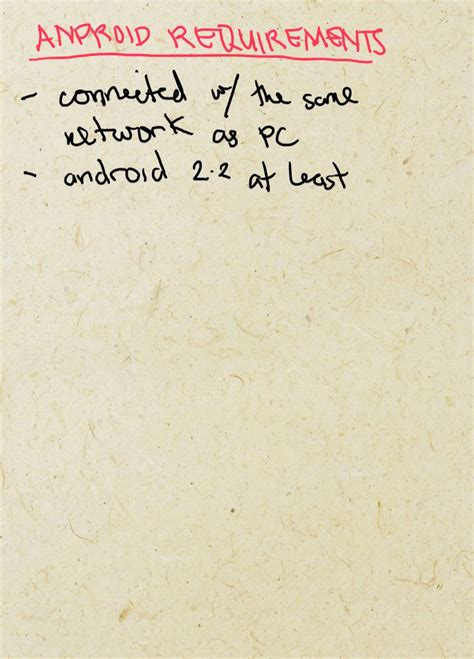 ANDROID REQUIREMENTS
- connected w/ the same
network as PC
- android 2.2 at least